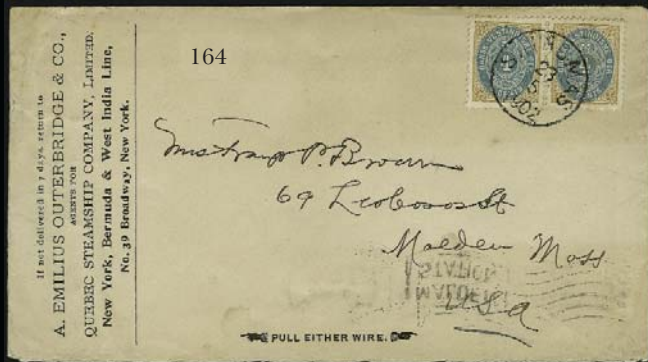 If not delivered in 7 days, return to
A. EMILIUS OUTERBRIDGE & CO.,
AGENTS FOR
QUEBEC STEAMSHIP COMPANY, LIMITED;
New York, Bermuda & West India Line,
No. 39 Broadway, New York.
164
ST. THOMAS
23
5
1902
P. Brown
69 St
Malden Mass
U.S.A
STATION
MALDEN
PULL EITHER WIRE.